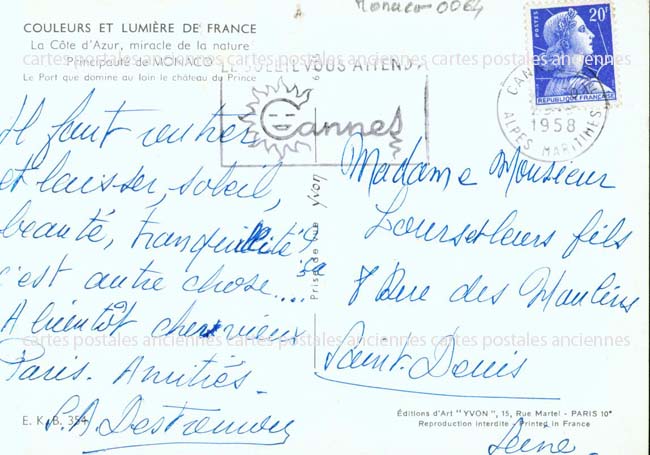 Monaco 0064
COULEURS ET LUMIÈRE DE FRANCE
La Côte d'Azur, miracle de la nature
Principauté de MONACO
Le Port que domine au loin le château du Prince
LE SOLEIL VOUS ATTEND
Cannes
POSTES
20F
REPUBLIQUE FRANÇAISE
CANNES
1958
ALPES MARITIMES
cartes postales anciennes cartes postales anciennes cartes postales anciennes
Il faut rentrer
et laisser, soleil,
beauté, tranquillité !
c'est autre chose....
A bientôt cher vieux
Paris. Amitiés.
E. K. B. 354
Prise de vue Yvon
Madame Monsieur
fils
8 Rue des Moulins
Saint. Denis
Seine.
cartes postales anciennes cartes postales anciennes cartes postales anciennes
Éditions d'Art "YVON", 15, Rue Martel - PARIS 10e
Reproduction interdite - Printed in France